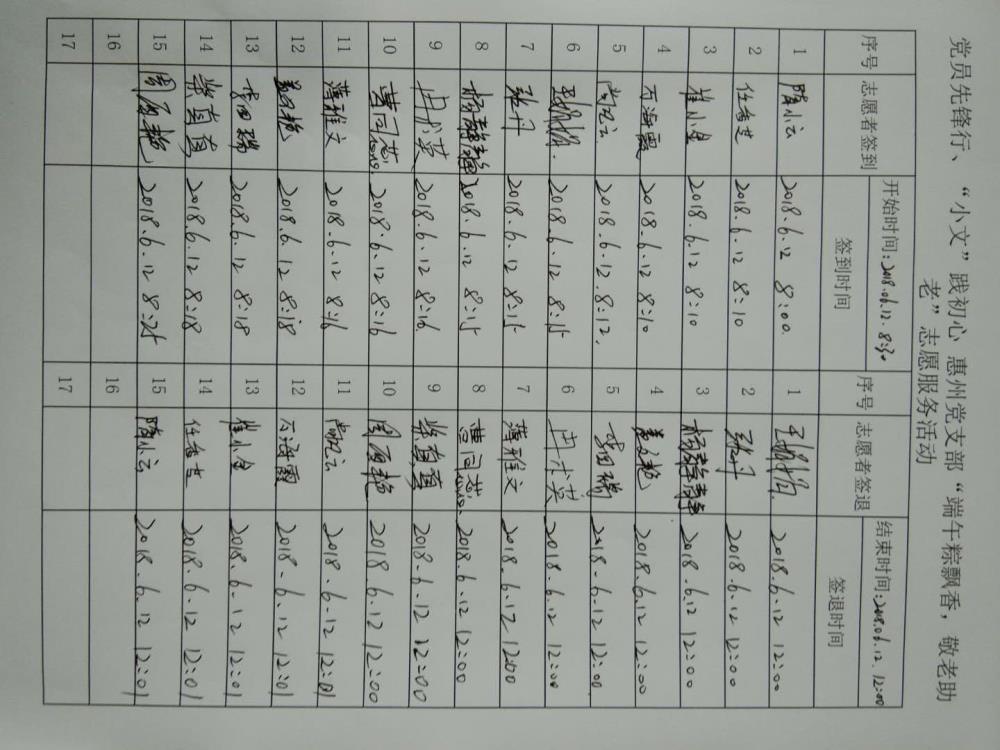 党员先锋行、“小文”践初心 惠州党支部“端午粽飘香，敬老助
老”志愿服务活动
开始时间:2018.06.12. 8:30 结束时间:2018.06.12. 12:00
序号 志愿者签到 签到时间 序号 志愿者签退 签退时间
1 隋小云 2018.6.12 8:00 1 2018.6.12 12:00
2 任香芝 2018.6.12 8:10 2 张丹 2018.6.12 12:00
3 崔小金 2018.6.12 8:10 3 杨静静 2018.6.12 12:00
4 万海霞 2018.6.12 8:10 4 姜艳 2018.6.12 12:00
5 尚迅云 2018.6.12. 8:12. 5 李田瑞 2018.6.12 12:00
6 2018.6.12 8:15 6 冉术英 2018.6.12 12:00
7 张丹 2018.6.12 8:15 7 薄雅文 2018.6.12 1200
8 杨静静 2018.6.12 8:15 8 曹同芯 2018.6.12 12:00
9 冉术英 2018.6.12 8:16 9 柴真真 2018.6.12 12:00
10 曹同芯 2018.6.12 8:16 10 周丽艳 2018.6.12 12:00
11 薄雅文 2018.6.12 8:16 11 尚迅云 2018.6.12 12:01
12 姜艳 2018.6.12 8:18 12 万海霞 2018.6.12 12:01
13 李田瑞 2018.6.12 8:18 13 崔小金 2018.6.12 12:01
14 柴真真 2018.6.12 8:18 14 任香芝 2018.6.12 12:01
15 周丽艳 2018.6.12 8:25 15 隋小云 2018.6.12 12:01
16 16
17 17